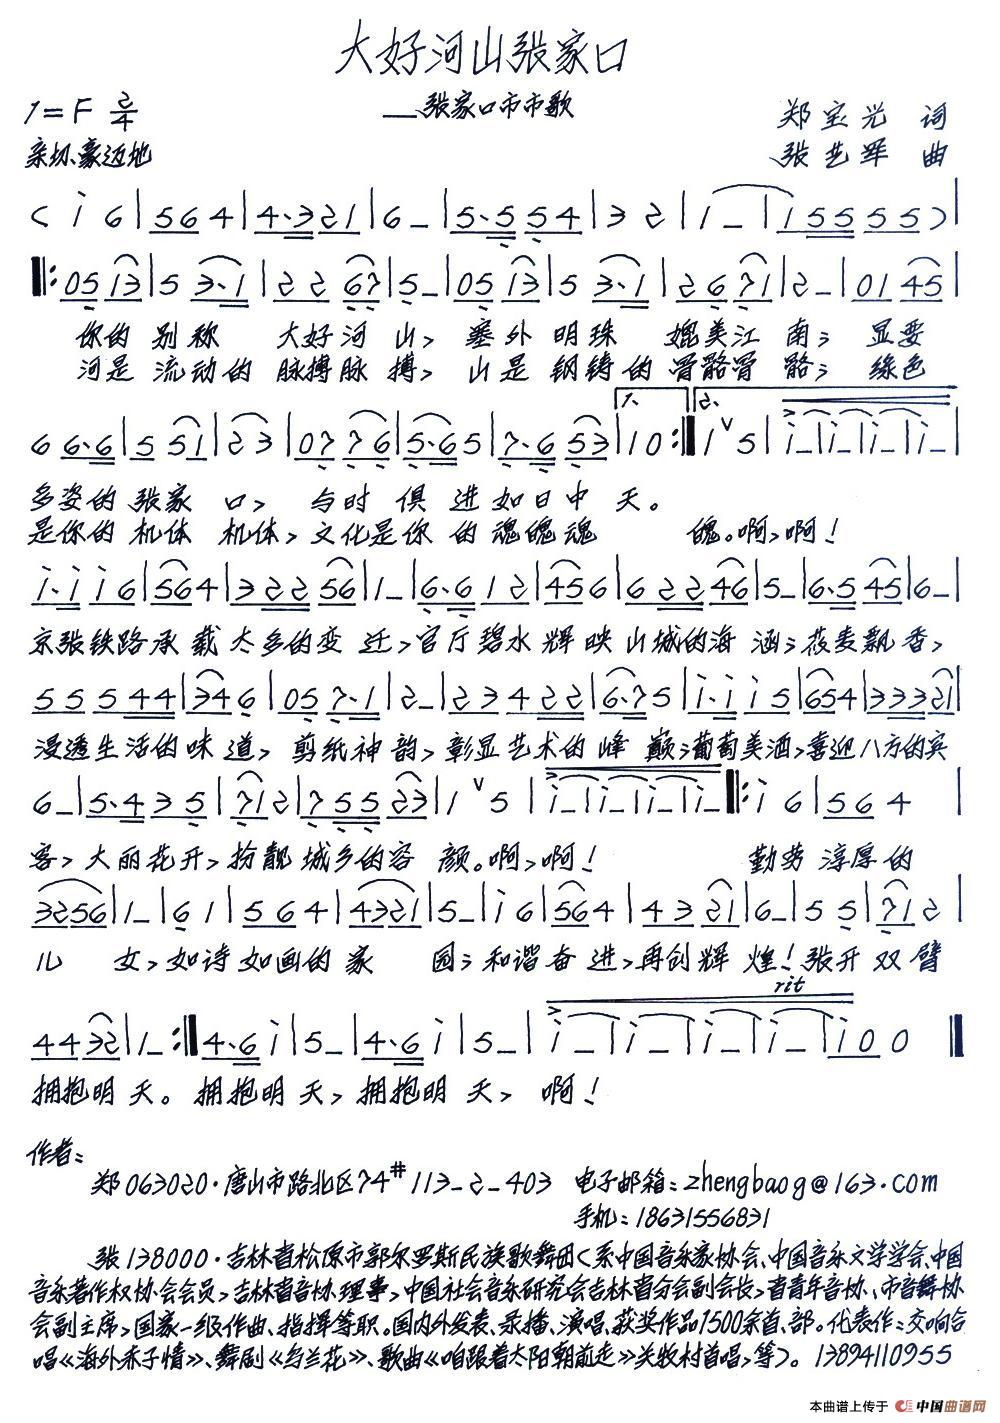 大好河山张家口
1=F 2/4
——张家口市市歌
郑宝光 词
亲切、豪迈地
张艺军 曲
你的 别称 大好河 山, 塞外 明珠 媲美江 南; 显要
河是 流动的 脉搏脉 搏, 山是 钢铸的 骨骼骨 骼; 绿色
多姿的 张家 口, 与时 俱 进如日中 天。
是你的 机体 机体, 文化是你 的 魂魄魂 魄。啊,啊!
京张铁路承 载 太多的变 迁,官厅碧水 辉 映 山城的海 涵;莜麦飘 香,
浸透生活的味 道, 剪纸神 韵,彰显艺术的 峰 巅;葡萄美酒,喜迎八方的宾
客,大丽花开,扮靓 城乡的容 颜。啊,啊! 勤劳 淳厚的
儿 女,如诗如画的 家 园;和谐奋 进,再创辉 煌!张开 双臂
rit
拥抱明 天。拥抱明 天,拥抱明 天, 啊!
作者:
郑063020·唐山市路北区74#113-2-403 电子邮箱:zhengbaog@163.com
手机:18631556831
张138000·吉林省松原市郭尔罗斯民族歌舞团(系中国音乐家协会、中国音乐文学学会、中国
音乐著作权协会会员,吉林省音协理事,中国社会音乐研究会吉林省分会副会长,省青年音协、市音舞协
会副主席,国家一级作曲、指挥等职。国内外发表、录播、演唱、获奖作品1500余首、部。代表作:交响合
唱《海外赤子情》、舞剧《乌兰花》、歌曲《咱跟着太阳朝前走》关牧村首唱,等)。13894110955
本曲谱上传于 中国曲谱网